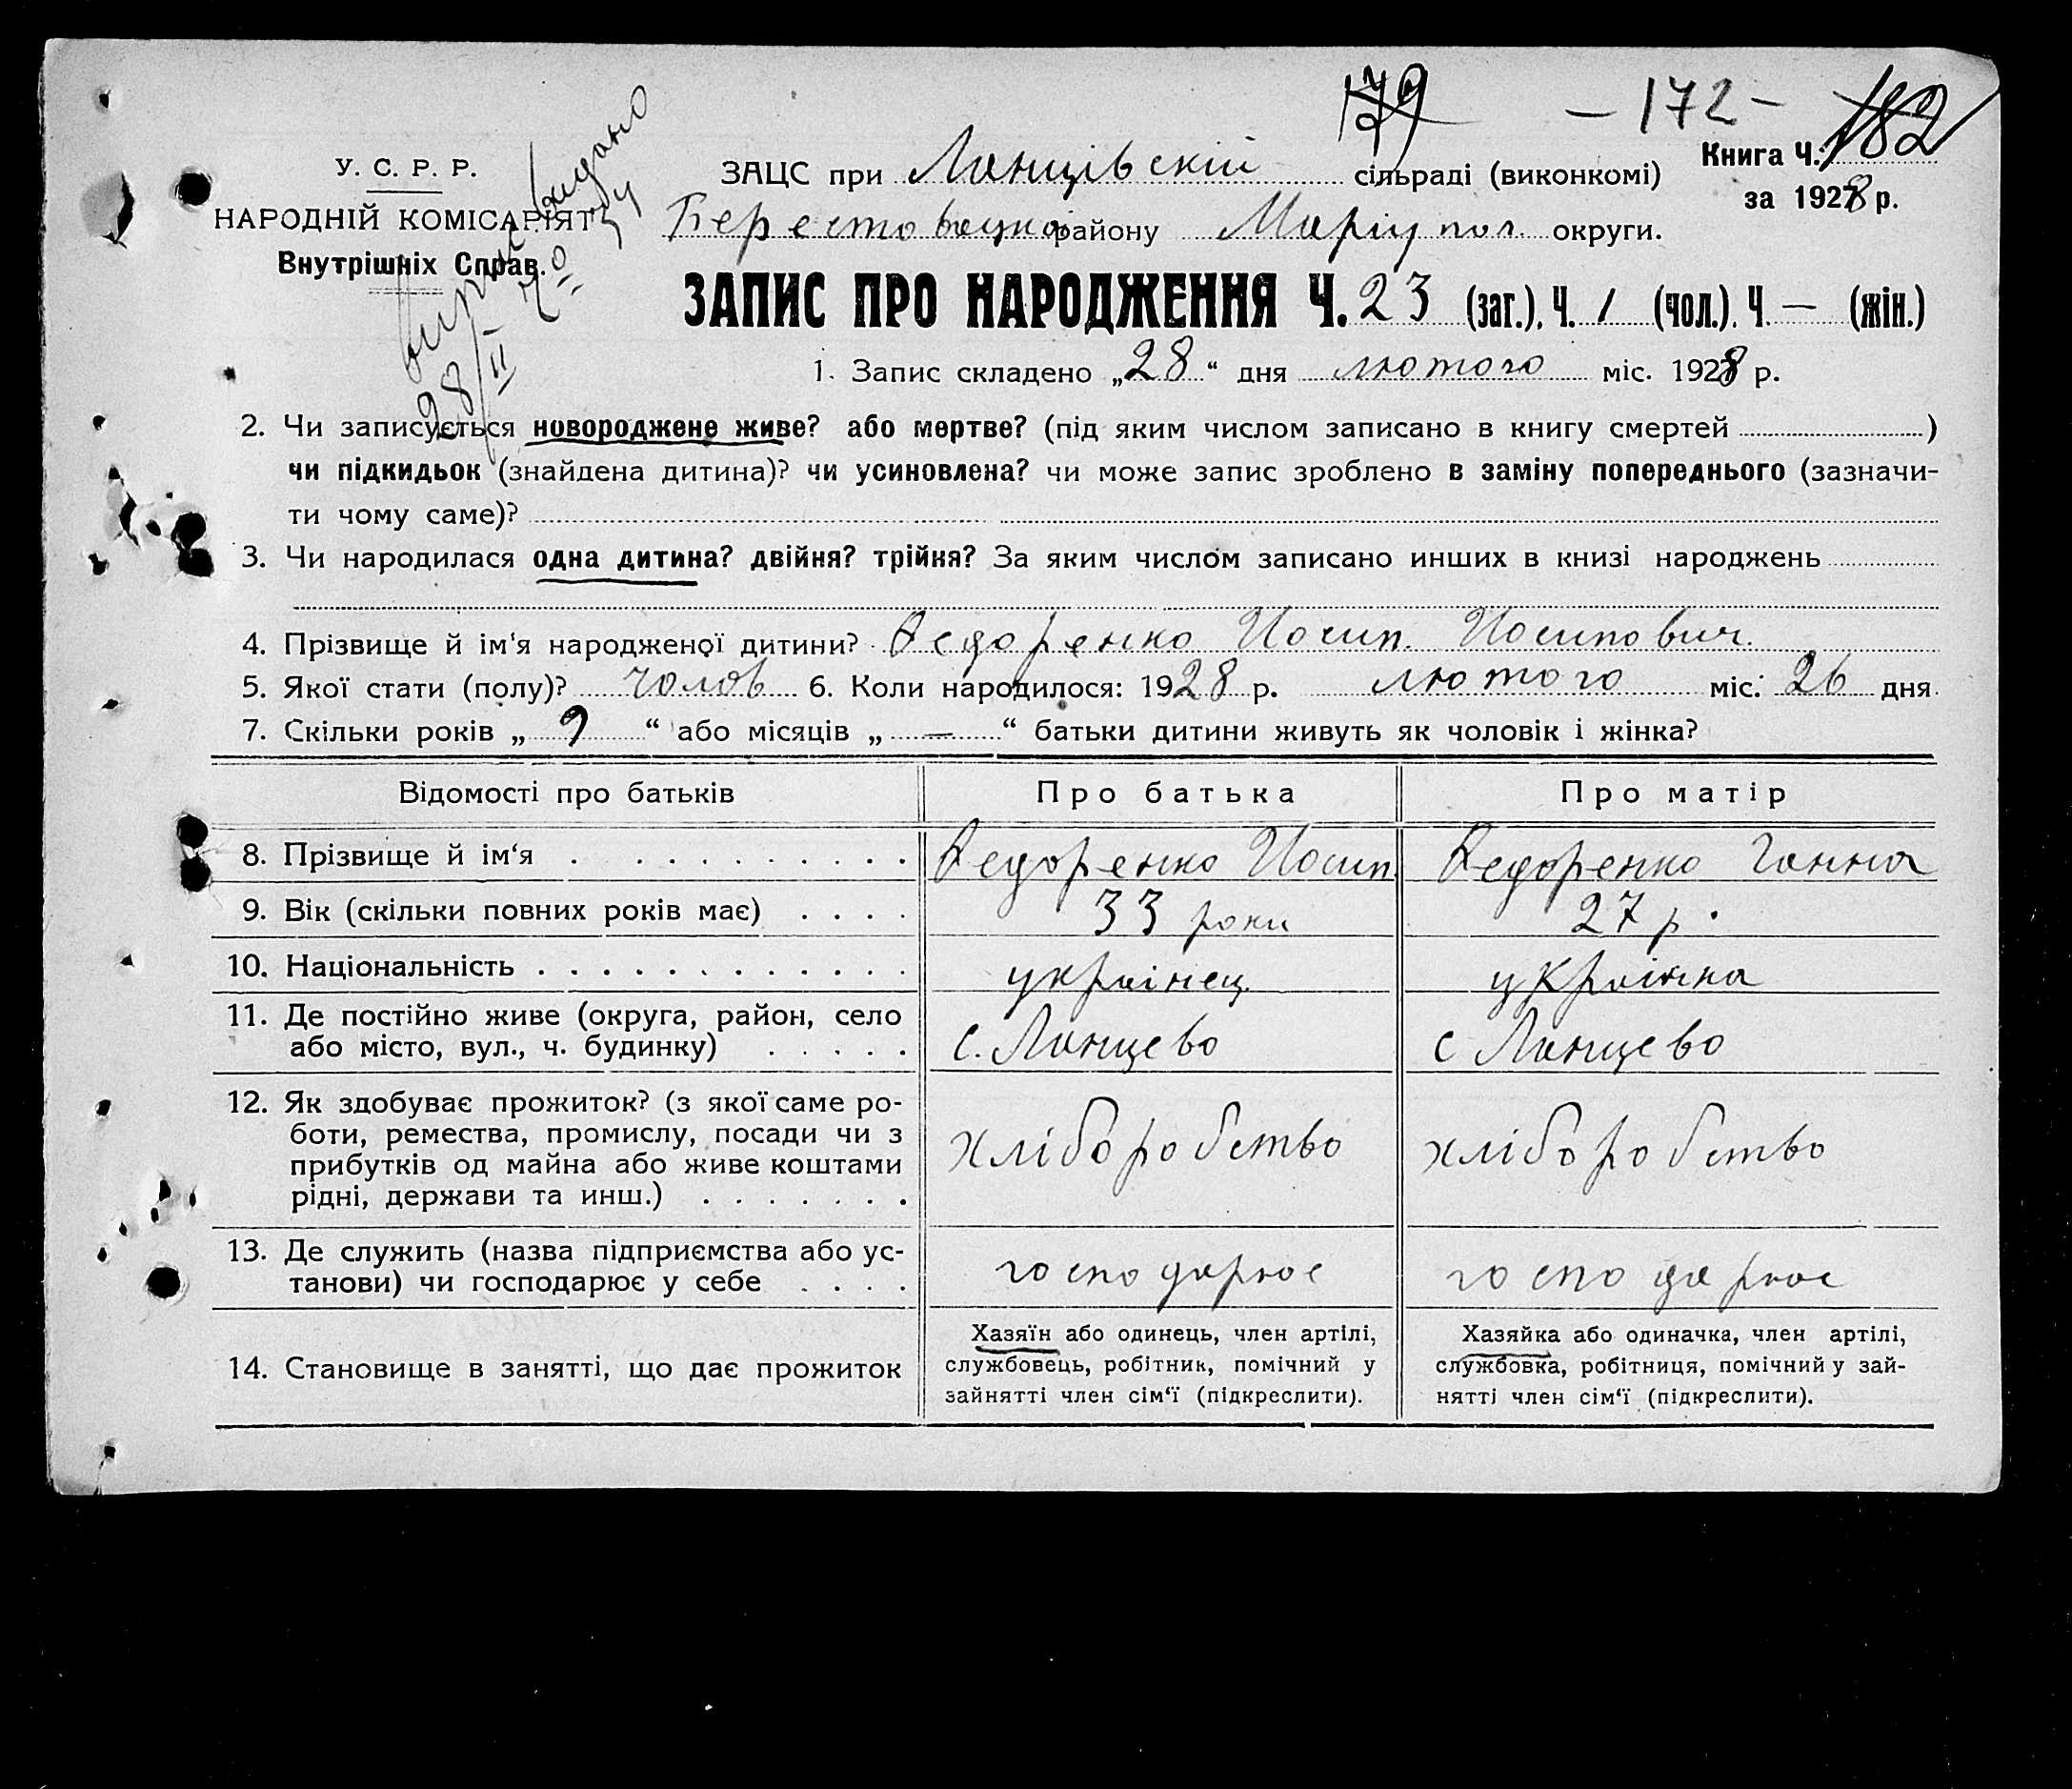 - 172 - 182
У. С. Р. Р. ЗАЦС при Ланцівскій сільраді (виконкомі) Книга Ч.
НАРОДНІЙ КОМІСАРІЯТ Берестовецько району Маріупол. округи. за 1928 р.
Внутрішніх Справ.
випис видано
28/II
ЗАПИС ПРО НАРОДЖЕННЯ Ч. 23 (заг.). Ч. 1 (чол.). Ч. — (жін.)
1. Запис складено „28“ дня лютого міс. 1928 р.
2. Чи записується новороджене живе? або мертве? (під яким числом записано в книгу смертей )
чи підкидьок (знайдена дитина)? чи усиновлена? чи може запис зроблено в заміну попереднього (зазначи-
ти чому саме)?
3. Чи народилася одна дитина? двійня? трійня? За яким числом записано инших в книзі народжень
4. Прізвище й ім‘я народженої дитини? Федоренко Йосип. Йосипович.
5. Якої стати (полу)? чолов 6. Коли народилося: 1928 р. лютого міс. 26 дня
7. Скільки років „ 9 “ або місяців „ — “ батьки дитини живуть як чоловік і жінка?
Відомості про батьків Про батька Про матір
8. Прізвище й ім‘я . . . . . . . . . . Федоренко Йосип. Федоренко Ганна
9. Вік (скільки повних років має) . . . . 33 роки 27 р.
10. Національність . . . . . . . . . . . . українец українка
11. Де постійно живе (округа, район, село
або місто, вул., ч. будинку) . . . . . с. Ланцево с Ланцево
12. Як здобуває прожиток? (з якої саме ро-
боти, ремества, промислу, посади чи з
прибутків од майна або живе коштами
рідні, держави та инш.) . . . . . . . хліборобство хліборобство
13. Де служить (назва підприємства або ус-
танови) чи господарює у себе . . . . господарює господарює
14. Становище в занятті, що дає прожиток
Хазяїн або одинець, член артілі,
службовець, робітник, помічний у
зайнятті член сім‘ї (підкреслити).
Хазяйка або одиначка, член артілі,
службовка, робітниця, помічний у зай-
нятті член сім‘ї (підкреслити).